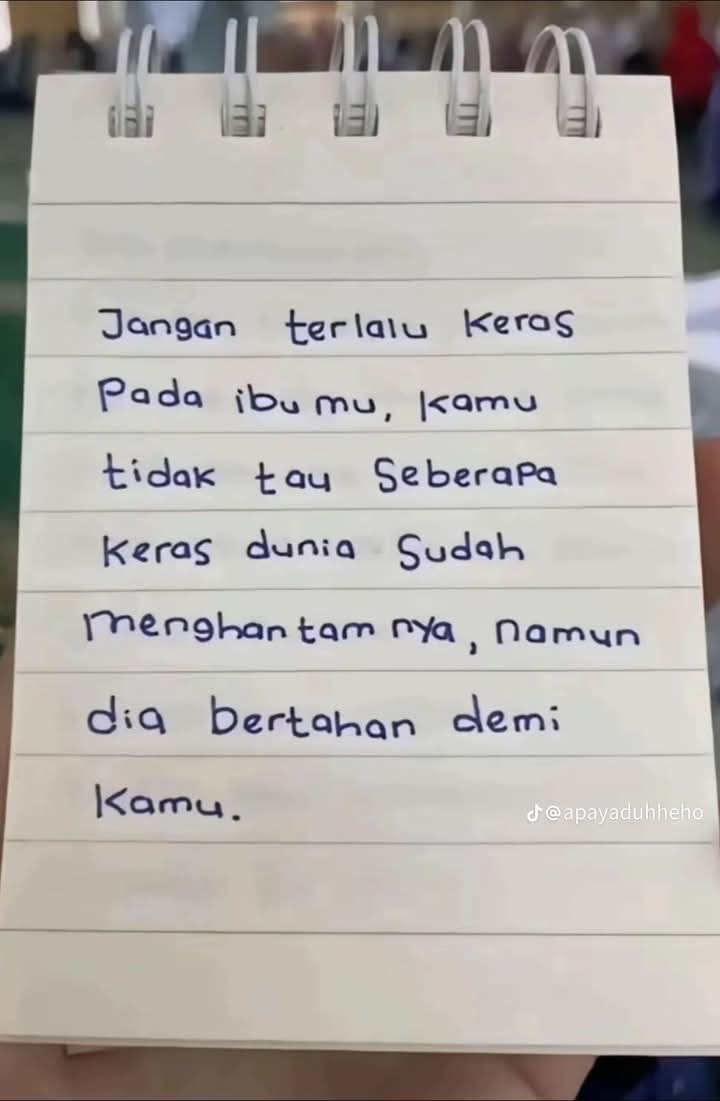 Jangan terlalu keras
Pada ibumu, kamu
tidak tau Seberapa
keras dunia Sudah
menghantamnya, namun
dia bertahan demi
kamu.
@apayaduhheho